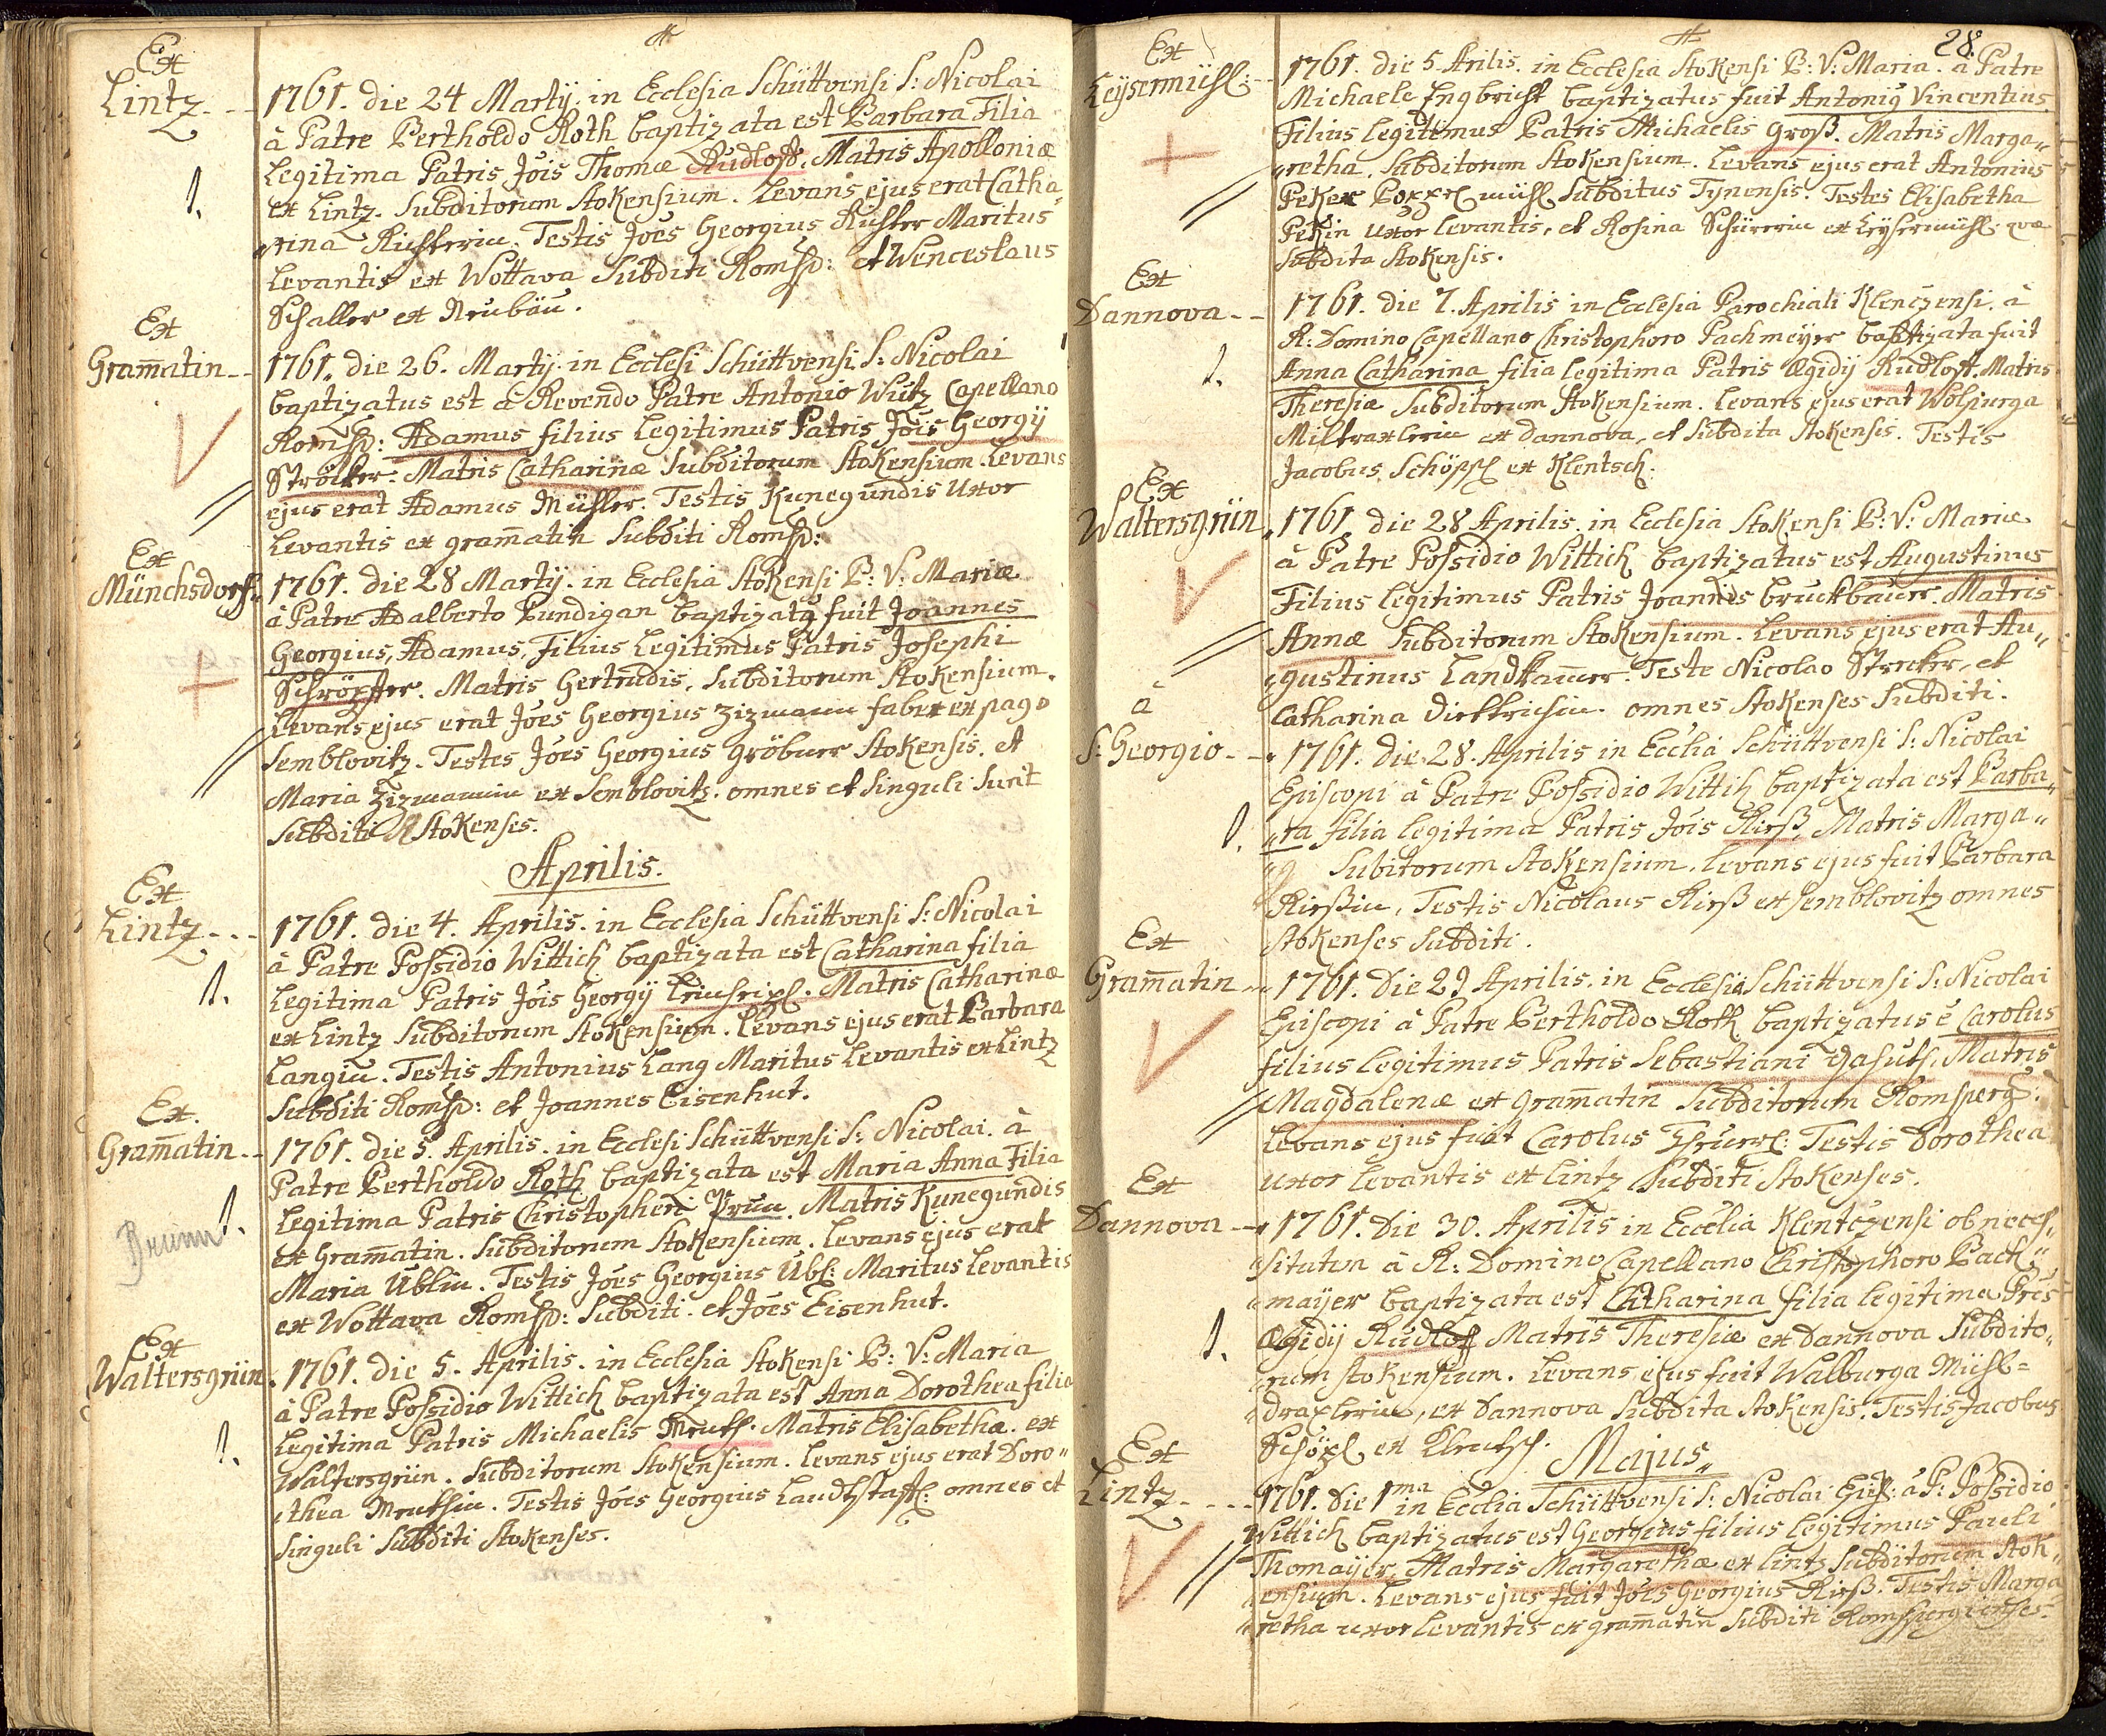 Ex
Lintz
1761. die 24 Martÿ. in Ecclesia Schüttvensi S: Nicolai
à Patre Bertholdo Roth baptizata est Barbara Filia
Legitima Patris Jois Thomæ Rudloff. Matris Apolloniæ
ex Lintz. Subditorum Stokensium. Levans ejus erat Catha„
„rina Richterin. Testis Joes Georgius Richter Maritus
Levantis ex Wottava Subditi Romsp: et Wenceslaus
Schaller ex Neubäu.
Ex
Gram̄atin
1761. die 26. Martÿ. in Ecclesi Schüttvensi S: Nicolai
baptizatus est à Revendo Patre Antonio Wutz Capellano
Romsp: Adamus filius Legitimus Patris Jois Georgÿ
Ströltzer. Matris Catharinæ Subditorum Stokensium. Levans
ejus erat Adamus Müller. Testis Kunegundis Uxor
Levantis ex gram̄atin Subditi Romsp:
Ex
Münchsdorf
1761. die 28 Martÿ. in Ecclesia Stokensi B: V: Mariæ
à Patre Adalberto Pundigan baptizatq fuit Joannes
Georgius, Adamus, Filius Legitimus Patris Josephi
Schröpfer. Matris Gertrudis, Subditorum Stokensium.
Levans ejus erat Joes Georgius Zizmann faber ex pago
Semblovitz. Testes Joes Georgius gröbner Stokensis. et
Maria Zizmannin ex Semblovitz. omnes et singuli sunt
Subditi Stokenses.
Aprilis.
Ex
Lintz
1761. die 4. Aprilis. in Ecclesia Schüttvensi S: Nicolai
à Patre Possidio Wittich baptizata est Catharina filia
Legitima Patris Jois Georgÿ. Matris Catharinæ
ex Lintz Subditorum Stokensium. Levans ejus erat Barbara
Langin. Testis Antonius Lang Maritus Levantis ex Lintz
Subditi Romsp: et Joannes Eisenhut.
Ex.
Gram̄atin
Brunn
1761. die 5. Aprilis. in Ecclesi Schüttvensi S: Nicolai. à
Patre Bertholdo Roth baptizata est Maria Anna Filia
Legitima Patris Christopheri Prun. Matris Kunegundis
ex Gram̄atin. Subditorum Stokensium. Levans ejus erat
Maria Üblin. Testis Joes Georgius Übl: Maritus Levantis
ex Wottava Romsp: Subditi. et Joes Eisenhut.
Ex
Waltersgrün
1761. die 5. Aprilis. in Ecclesia Stokensi B: V: Maria
à Patre Possidio Wittich baptizata est Anna Dorothea filia
Legitima Patris Michaelis. Matris Elisabetha. ex
Waltersgrün. Subditorum Stokensium. Levans ejus erat Doro„
„thea. Testis Joes Georgius omnes et
singuli Subditi Stokenses.
28.
Ex
Leysermühl:
1761. die 5 Arilis. in Ecclesia Stokensi B: V: Maria. à Patre
Michaele Ingbricht baptizatus fuit Antoniq Vincentius
Filius Legitimus Patris Michaelis Groß. Matris Marga„
„retha, Subditorum Stokensium. Levans ejus erat Antonius
Peker Subditus Tynensis. Testes Elisabetha
Pekin Uxor Levantis, et Rosina Schürerin ex Leysermühl. qvæ
Subdita Stokensis.
Ex
Dannova
1761. die 7. Aprilis in Ecclesia Parochiali Klenczensi. à
R: Domino Capellano Christophoro Pachmeyer baptizata fuit
Anna Catharina filia legitima Patris Ægidÿ Rudloff. Matris
Theresiæ Subditorum Stokensium. Levans ejus erat Wolpurga
Miltraxlerin ex Dannova, et Subdita Stokensis. Testis
Jacobus Schöppl ex Klentsch.
Ex
Waltersgrün
1761. die 28 Aprilis. in Ecclesia Stokensi B: V: Mariæ
à Patre Possidio Wittich baptizatus est Augustinus
Filius Legitimus Patris Joannis bruckbauer. Matris
Annæ Subditorum Stokensium. Levans ejus erat Au„
„gustinus Landkam̄er. Teste Nicolao Strecker, et
Catharina Dirktrichin. omnes Stokenses Subditi.
à
S: Georgio
1761. die 28. Aprilis in Ecclia Schüttvensi S: Nicolai
Episcopi à Patre Possidio Wittih baptizata est Barba„
„ra filia legitima Patris Jois Kirß, Matris Marga„
Subitorum Stokensium. Levans ejus fuit Barbara
Kirßin, Testis Nicolaus Kirß ex Semblovitz omnes
Stokenses Subditi.
Ex
Gram̄atin
1761. Die 29 Aprilis. in Ecclesia Schüttvensi S: Nicolai
Episcopi à Patre Bertholdo Roth baptizatus ē Carolus
filius legitimus Patris Sebastiani. Matris
Magdalenæ ex Gram̄atin Subditorum Romsperg:
Levans ejus fuit Carolus. Testis Dorothea
uxor Levantis ex Lintz Subditi Stokenses.
Ex
Dannova
1761. Die 30. Aprilis in Ecclia Klentczensi ob neces„
„sitatem à R: Domino Capellano Christophoro Pach„
„mayer baptizata est Catharina filia legitima Pris
Ægidÿ Rudlof Matris Theresiæ ex Dannova Subdito„
„rum Stokensium. Levans ejus fuit Walburga Mühl=
„draxlerin, ex Dannova Subdita Stokensis. Testis Jacobus
Schöpl ex Klentsch.
Majus
Ex
Lintz
1761. Die 1ma in Ecclia Schüttvensi S: Nicolai Epis: à P: Possidio
Wittich baptizatus est Georgius filius legitimus Pauli
Thomaÿer, Matris Margarethæ ex Lintz Subditorum Stok„
„ensium. Levans ejus fuit Joes Georgius Kirß. Testis Marga
„retha uxor Levantis ex gram̄atin Subditi Romspergienses.